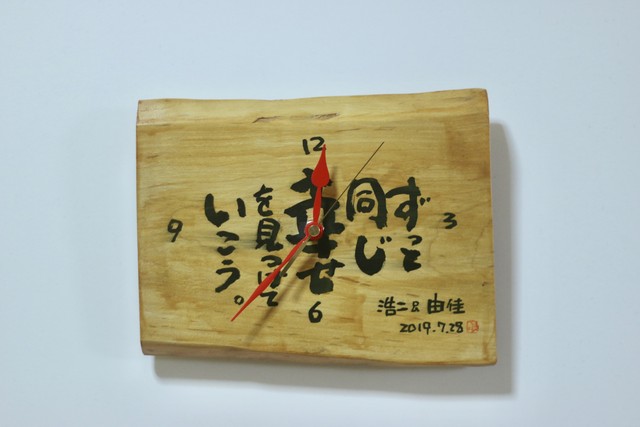 12
3
6
9
ずっと
同じ
幸せ
を見つけて
いこう。
浩二&由佳
2019.7.28